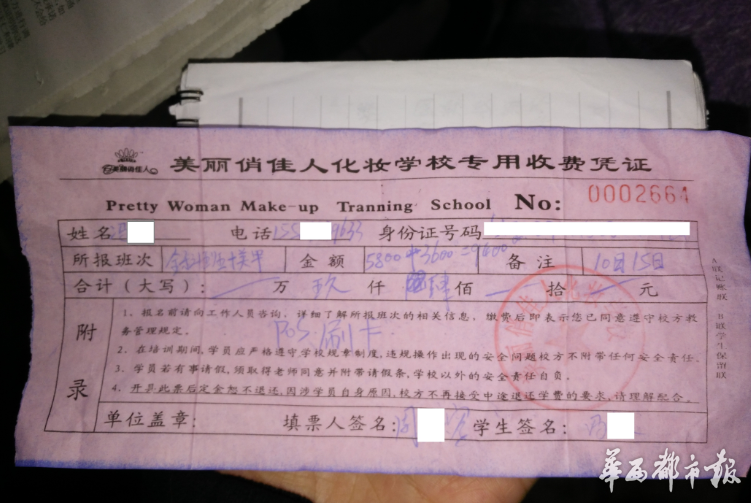 美丽俏佳人 美丽俏佳人化妆学校专用收费凭证
Pretty Woman Make-up Tranning School No: 0002664
姓名 电话 155 9633 身份证号码
所报班次 金额 5800+3600=9400 备注 10月15日
合计（大写）： 一 万 玖 仟 肆 佰 一 拾 一 元
附录
1．报名前请向工作人员咨询，详细了解所报班次的相关信息，缴费后即表示您已同意遵守校方教
务管理规定。
POS刷卡
2．在培训期间，学员应严格遵守学校规章制度，违规操作出现的安全问题校方不附带任何安全责任。
3．学员若有事请假，须取得老师同意并附带请假条，学校以外的安全责任自负。
4．开具此票后定金恕不退还，因涉学员自身原因，校方不再接受中途退还学费的要求，请理解配合。
单位盖章： 填票人签名： 学生签名：
A联记账联 B联学生保留联
华西都市报